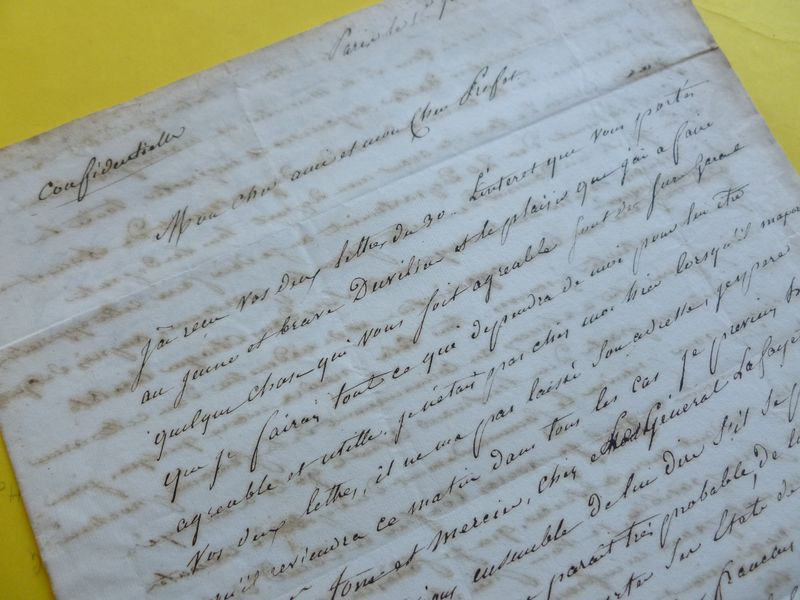 Paris le 1er
confidentielle
Mon cher ami et mon cher Prefet
J'ai recu vos deux lettres du 30. L'interet que vous portez
au jeune et brave et le plaisir que j'ai a faire
quelque chose qui vous soit agreable sont de sur garant
que je fairai tout ce que dependra de moi pour lui être
agreable et utille. je n'étais pas chez moi hier lorsqu'il m'apporta
vos deux lettres, il ne m'a pas laissé son adresse, j'espere
qu'il reviendra ce matin dans tous les cas je previens
tome et mercier, chez le Général Lafaye
ensemble de lui dire s'il se p
paraît très probable, de l
porter sur Etats de
francais